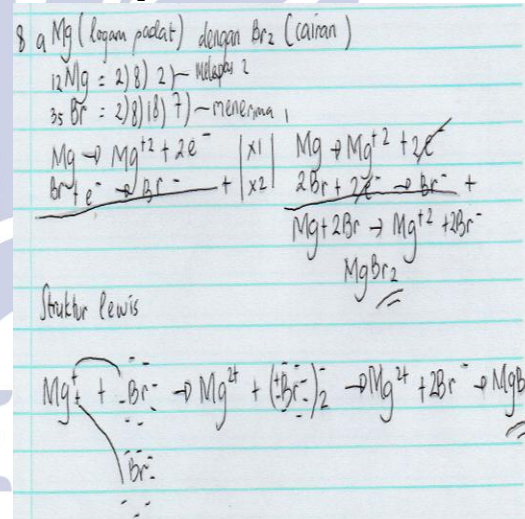 8 a Mg (logam padat) dengan Br₂ (cairan)
₁₂Mg = 2) 8) 2) ~ Melepas 2
₃₅Br = 2) 8) 18) 7) ~ menerima 1
Mg → Mg⁺² + 2e⁻ |x1| Mg → Mg⁺² + 2e⁻
Br + e⁻ → Br⁻ + |x2| 2Br + 2e⁻ → Br⁻ +
Mg + 2Br → Mg⁺² + 2Br⁻
MgBr₂
Struktur lewis
Mg + Br → Mg²⁺ + (Br)₂⁻ → Mg²⁺ + 2Br⁻ → MgB
Br